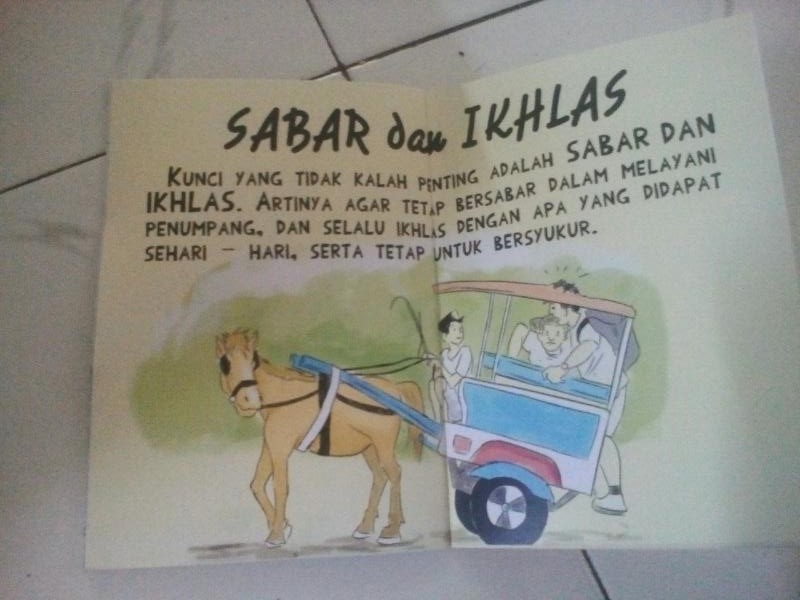 SABAR dan IKHLAS
KUNCI YANG TIDAK KALAH PENTING ADALAH SABAR DAN
IKHLAS. ARTINYA AGAR TETAP BERSABAR DALAM MELAYANI
PENUMPANG, DAN SELALU IKHLAS DENGAN APA YANG DIDAPAT
SEHARI – HARI, SERTA TETAP UNTUK BERSYUKUR.